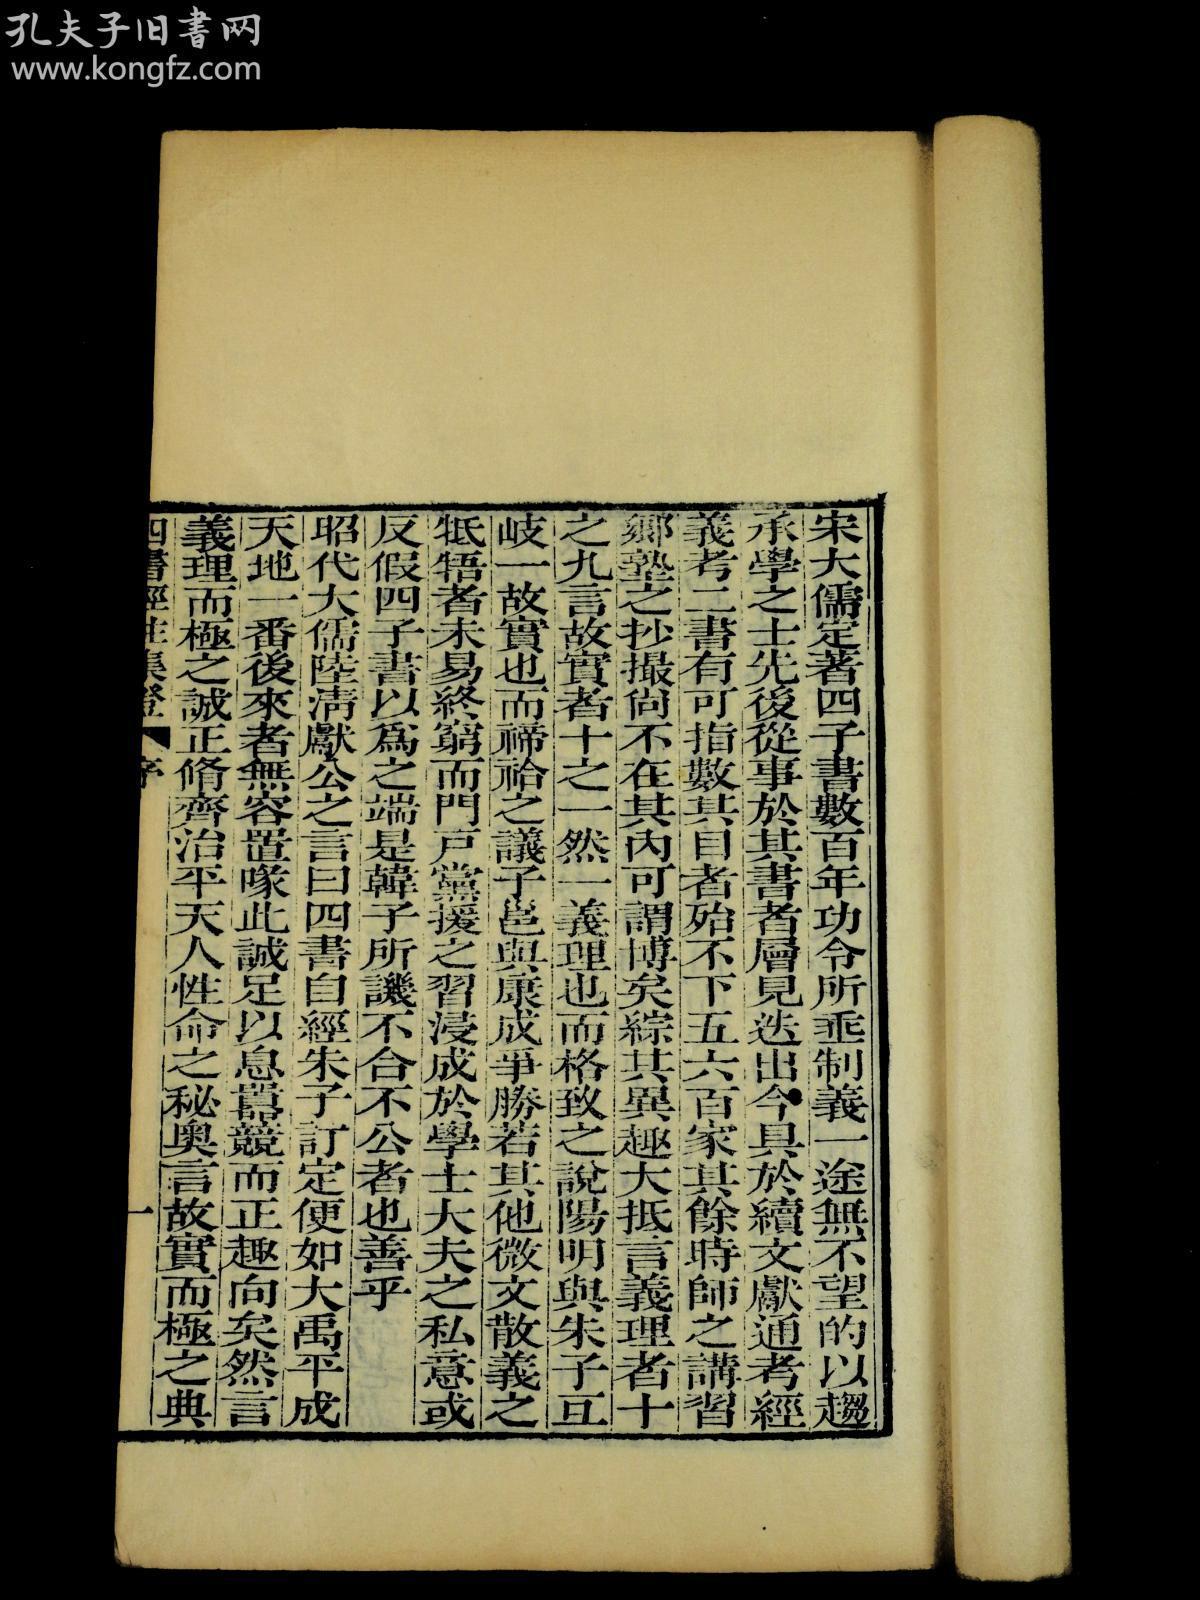 孔夫子旧書网
www.kongfz.com
宋大儒定著四子書數百年功令所垂制義一途無不望的以趨
承學之士先後從事於其書者層見迭出今具於續文獻通考經
義考二書有可指數其目者殆不下五六百家其餘時師之講習
鄉塾之抄撮尙不在其內可謂博矣綜其異趣大抵言義理者十
之九言故實者十之一然一義理也而格致之說陽明與朱子互
岐一故實也而禘祫之議子邕與康成爭勝若其他微文散義之
牴牾者未易終窮而門戸黨援之習浸成於學士大夫之私意或
反假四子書以爲之端是韓子所譏不合不公者也善乎
昭代大儒陸淸獻公之言曰四書自經朱子訂定便如大禹平成
天地一番後來者無容置喙此誠足以息囂競而正趣向矣然言
義理而極之誠正脩齊治平天人性命之秘奥言故實而極之典
四書經註集證 序 一